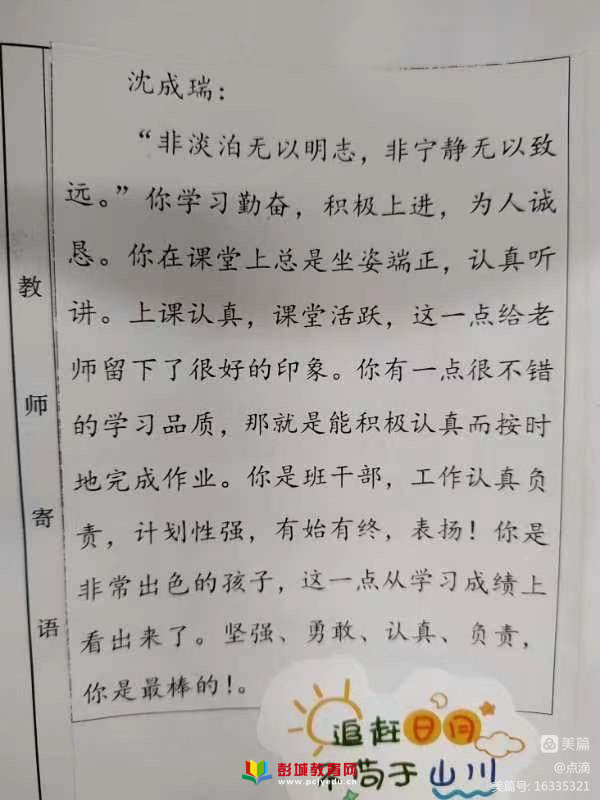 沈成瑞：
“非淡泊无以明志，非宁静无以致
远。”你学习勤奋，积极上进，为人诚
恳。你在课堂上总是坐姿端正，认真听
讲。上课认真，课堂活跃，这一点给老
师留下了很好的印象。你有一点很不错
的学习品质，那就是能积极认真而按时
地完成作业。你是班干部，工作认真负
责，计划性强，有始有终，表扬！你是
非常出色的孩子，这一点从学习成绩上
看出来了。坚强、勇敢、认真、负责，
你是最棒的！。
教师寄语
追赶日月
不苟于山川
彭城教育网
www.pcjyedu.cn
美篇
@点滴
美篇号: 16335321